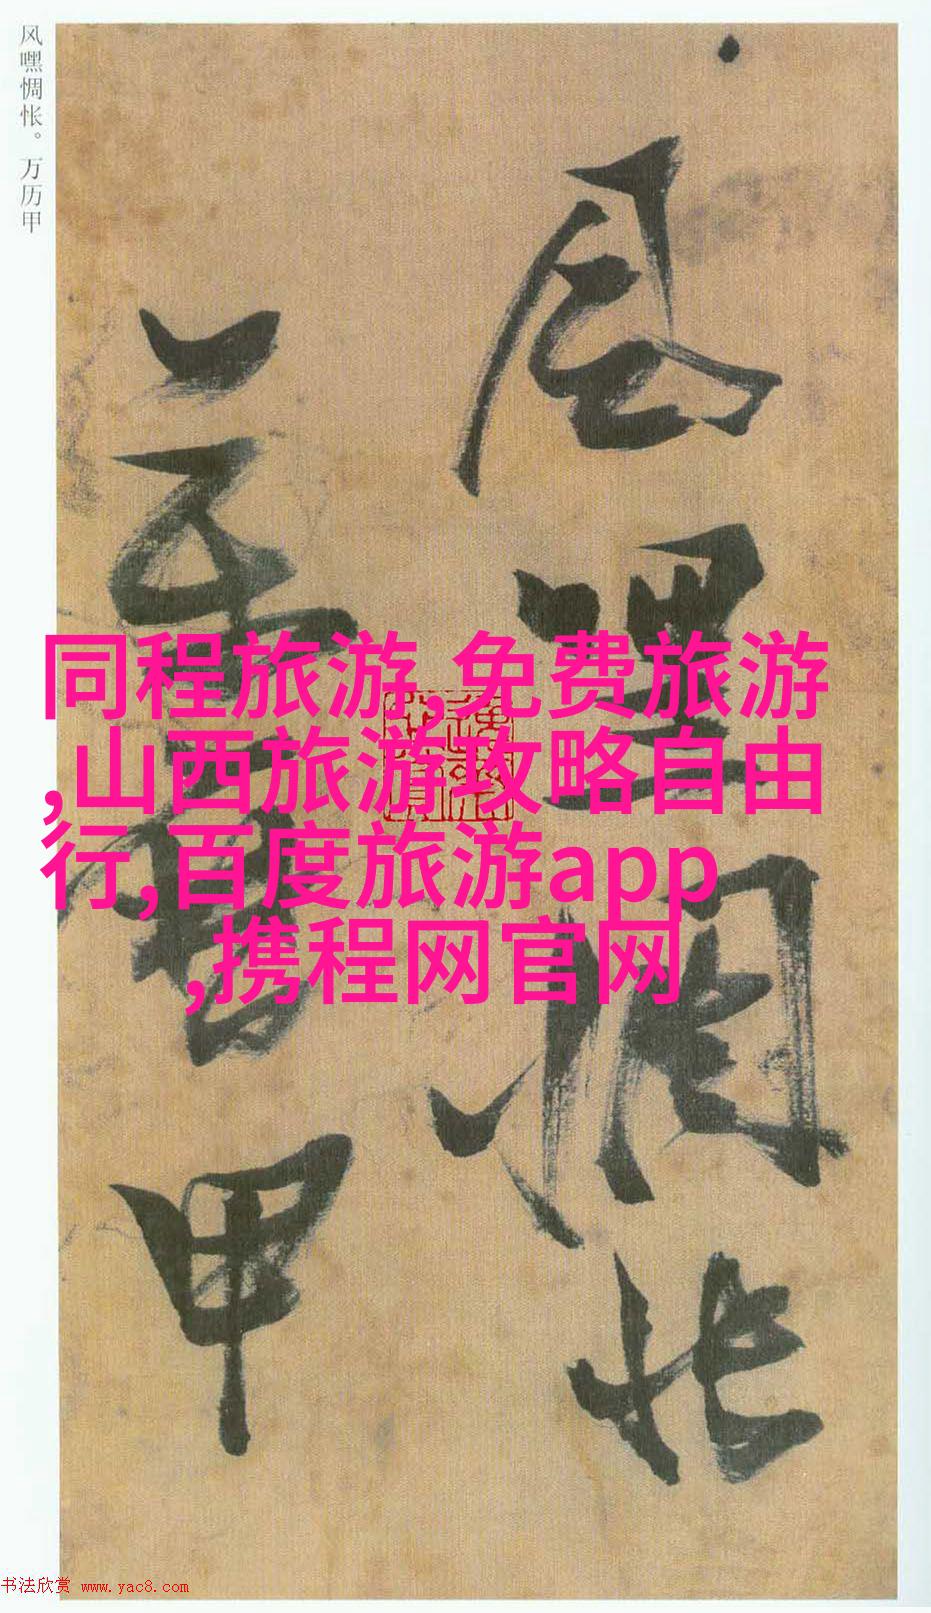 风嘿惆怅。万历甲
风嘿惆怅
万历甲
同程旅游,免费旅游
,山西旅游攻略自由
行,百度旅游app
,携程网官网
书法欣赏 www.yac8.com